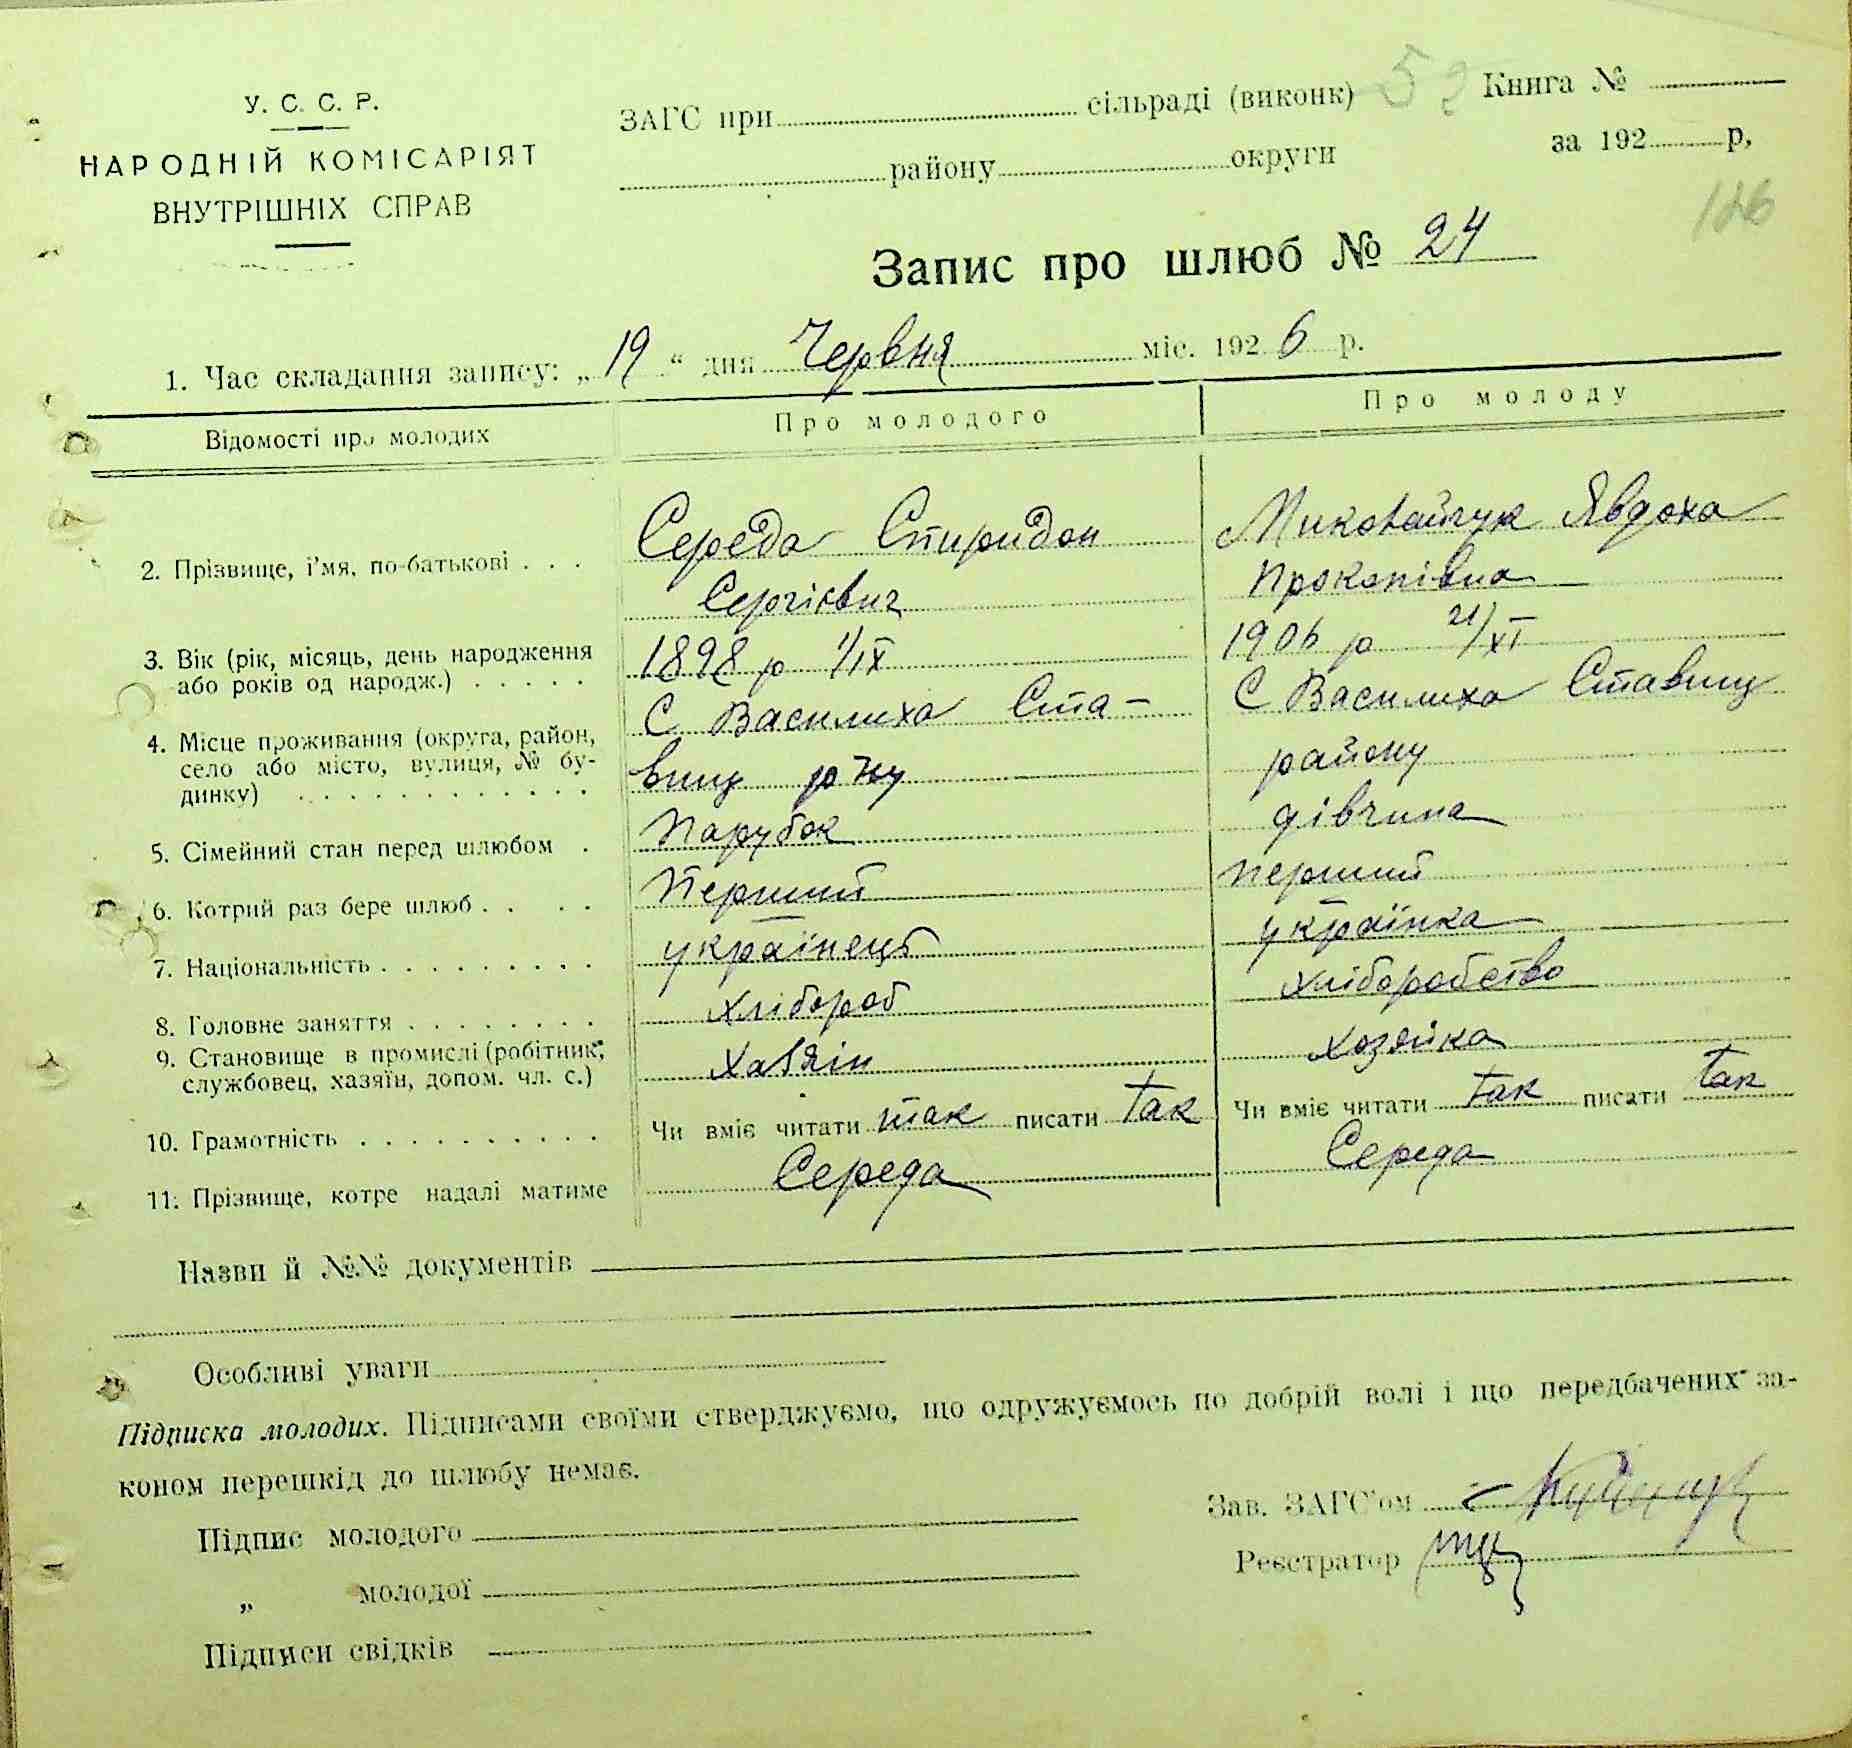 У. С. С. Р.
НАРОДНІЙ КОМІСАРІЯТ
ВНУТРІШНІХ СПРАВ
ЗАГС при сільраді (виконк) 52 Книга №
району округи за 192 р,
126
Запис про шлюб № 24
1. Час складання запису: „ 19 “ дня Червня міс. 192 6 р.
Відомості про молодих Про молодого Про молоду
2. Прізвище, і'мя, по-батькові . . . Середа Спиридон Миколайчук Явдоха
Сергієвич Прокопівна
3. Вік (рік, місяць, день народження 1898 р 1/IX 1906 р 21/XI
або років од народж.) . . . . .
4. Місце проживання (округа, район, С Василиха Ста- С Василиха Ставищ
село або місто, вулиця, № бу- вищ р ну району
динку) . . . . . . . . . . . .
5. Сімейний стан перед шлюбом . Парубок дівчина
6. Котрий раз бере шлюб . . . . Перший перший
7. Національність . . . . . . . . . українець українка
8. Головне заняття . . . . . . . . хлібороб хліборобство
9. Становище в промислі (робітник, Хазяін хозяйка
службовец, хазяїн, допом. чл. с.)
10. Грамотність . . . . . . . . . . Чи вміє читати так писати так Чи вміє читати так писати так
11. Прізвище, котре надалі матиме Середа Середа
Назви й №№ документів
Особливі уваги
Підписка молодих. Підписами своїми стверджуємо, що одружуємось по добрій волі і що передбачених за-
коном перешкід до шлюбу немає.
Зав. ЗАГС'ом
Підпис молодого
Реєстратор
„ молодої
Підписи свідків